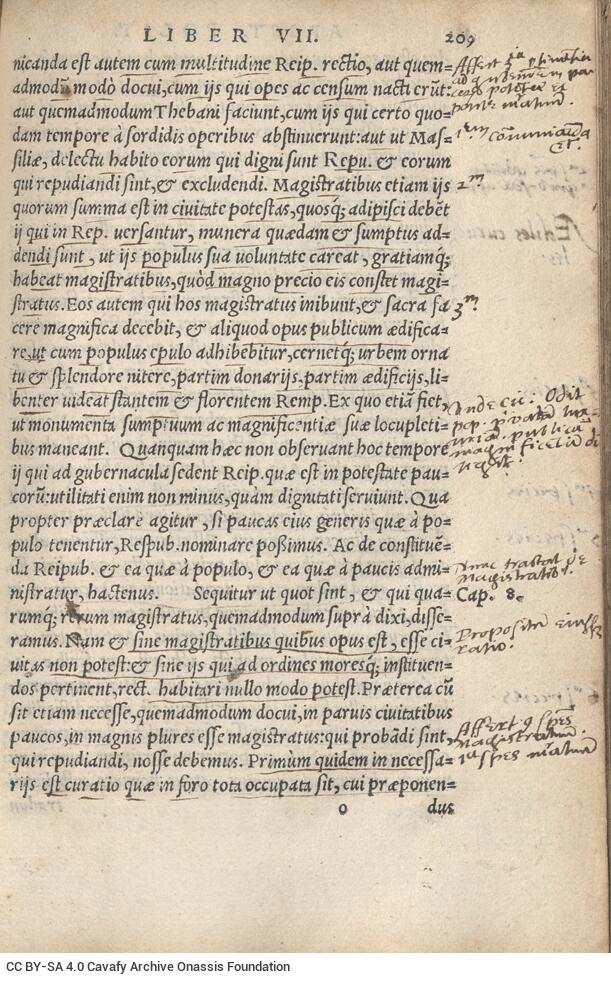 LIBER VII. 209
nicanda est autem cum multitudine Reip. rectio, aut quem=
admodũ modò docui, cum ijs qui opes ac censum nacti erũt:
aut quemadmodum Thebani faciunt, cum ijs qui certo quo=
dam tempore à sordidis operibus abstinuerunt: aut ut Mas=
siliæ, delectu habito eorum qui digni sunt Repu. & eorum
qui repudiandi sint, & excludendi. Magistratibus etiam ijs
2.m
quorum summa est in ciuitate potestas, quosq; adipisci debẽt
ij qui in Rep. uersantur, munera quædam & sumptus ad=
dendi sunt, ut ijs populus sua uoluntate careat, gratiamq;
habeat magistratibus, quòd magno precio eis constet magi=
stratus. Eos autem qui hos magistratus inibunt, & sacra fa
3.m
cere magnifica decebit, & aliquod opus publicum ædifica=
re, ut cum populus epulo adhibebitur, cernetq; urbem orna
tu & splendore nitere, partim donarijs, partim ædificijs, li=
benter uideat stantem & florentem Remp. Ex quo etiã fiet,
ut monumenta sumptuum ac magnificentiæ suæ locupleti=
bus maneant. Quanquam hæc non obseruant hoc tempore
ij qui ad gubernacula sedent Reip. quæ est in potestate pau=
corũ: utilitati enim non minus, quàm dignitati seruiunt. Qua
propter præclare agitur, si paucas eius generis quæ à po=
pulo tenentur, Respub. nominare possimus. Ac de constituẽ=
da Reipub. & ea quæ à populo, & ea quæ à paucis admi=
nunc tractat de
magistratib.
nistratur, hactenus. Sequitur ut quot sint, & qui qua=
Cap. 8.
rumq; rerum magistratus, quemadmodum suprà dixi, disse=
ramus. Nam & sine magistratibus quibus opus est, esse ci=
uitas non potest: & sine ijs qui ad ordines moresq; instituen=
dos pertinent, rectè habitari nullo modo potest. Præterea cũ
sit etiam necesse, quemadmodum docui, in paruis ciuitatibus
paucos, in magnis plures esse magistratus: qui probãdi sint,
qui repudiandi, nosse debemus. Primùm quidem in necessa=
rijs est curatio quæ in foro tota occupata sit, cui præponen=
o dus
CC BY-SA 4.0 Cavafy Archive Onassis Foundation